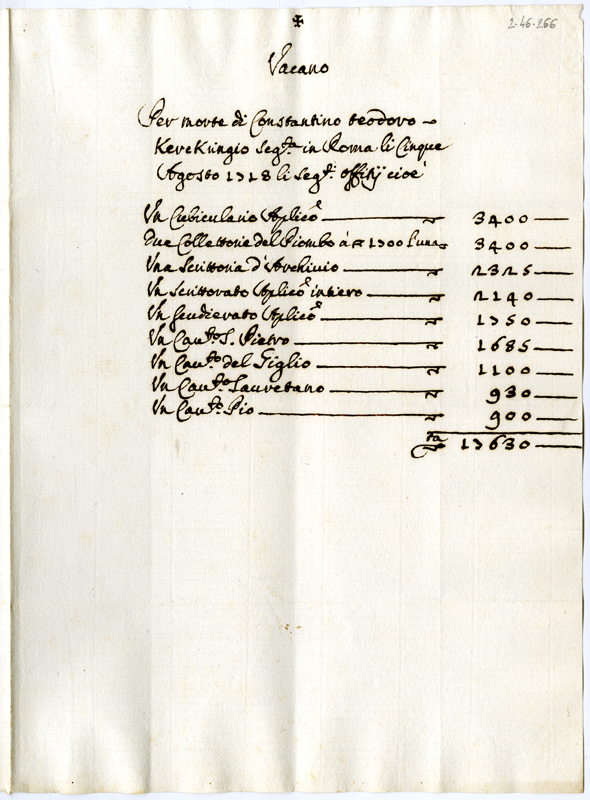 ✠
2-46-266
Vacano
Per morte di Constantino teodoro
Kerckringio Seg.ti in Roma li Cinque
Agosto 1718 li Seg.ti offitij cioè
Un Cubiculario Aplico 3400
Due Collettorie del Piombo à 1700 l'una 3400
Una Scrittoria d'Archivio 2725
Un Scrittorato Aplico intiero 2140
Un Scudierato Aplico 1350
Un Cau.to S. Pietro 1685
Un Cau.to del Giglio 1100
Un Cau.to Lauretano 930
Un Cau.to Pio 900
17630